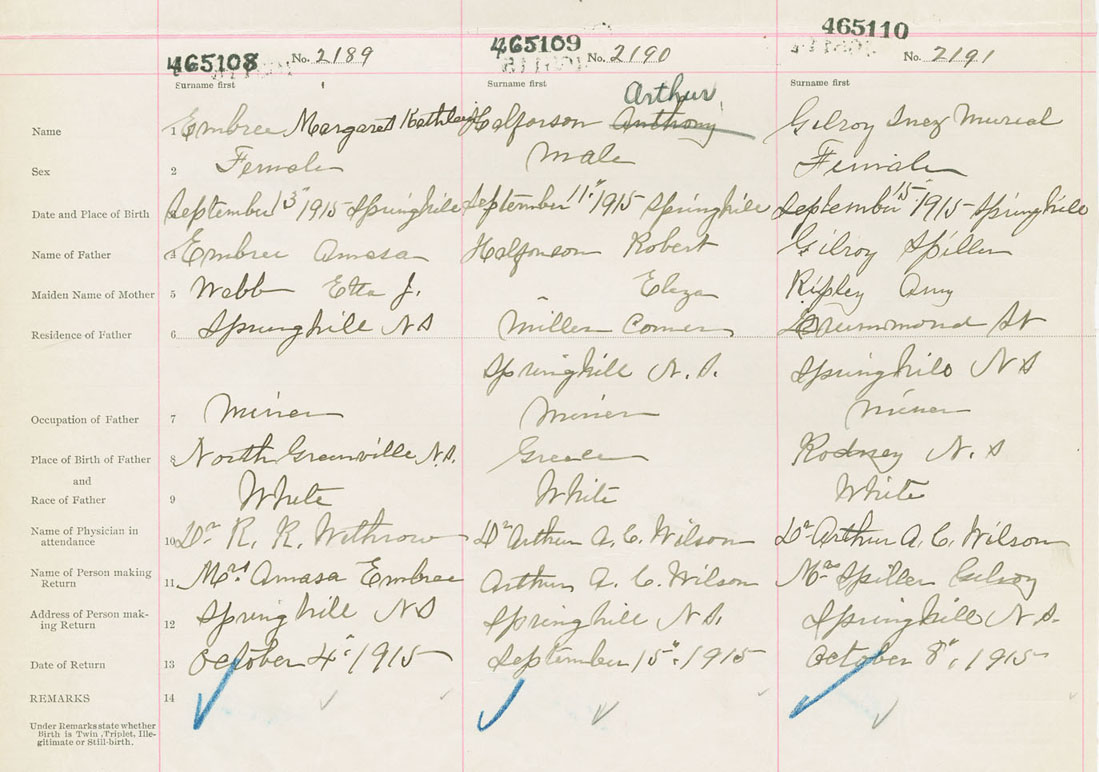 465108 No. 2189 465109 No. 2190 465110 No. 2191
Surname first Surname first Surname first
Arthur
Name 1 Embree Margaret Kathleen Halforson Anthony Gilroy Inez Muriel
Sex 2 Female Male Female
Date and Place of Birth September 13" 1915 Springhill September 11" 1915 Springhill September 15" 1915 Springhill
Name of Father 4 Embree Amasa Halfonson Robert Gilroy Spiller
Maiden Name of Mother 5 Webb Etta J. Eliza Ripley Amy
Residence of Father 6 Springhill NS Miller Corner Drummond St
Springhill N.S. Springhill N S
Occupation of Father 7 Miner Miner Miner
Place of Birth of Father 8 North Greenville N.S. Rodney N. S
and
Race of Father 9 White White White
Name of Physician in 10 Dr R. R. Withrow Dr Arthur A. C. Wilson Dr Arthur A. C. Wilson
attendance
Name of Person making 11 Mrs Amasa Embree Arthur A. C. Wilson Mrs Spiller Gilroy
Return
Address of Person mak- 12 Springhill NS Springhill N.S. Springhill N.S.
ing Return
Date of Return 13 October 4" 1915 September 15". 1915 October 8", 1915
REMARKS 14
Under Remarks state whether
Birth is Twin, Triplet, Ille-
gitimate or Still-birth.